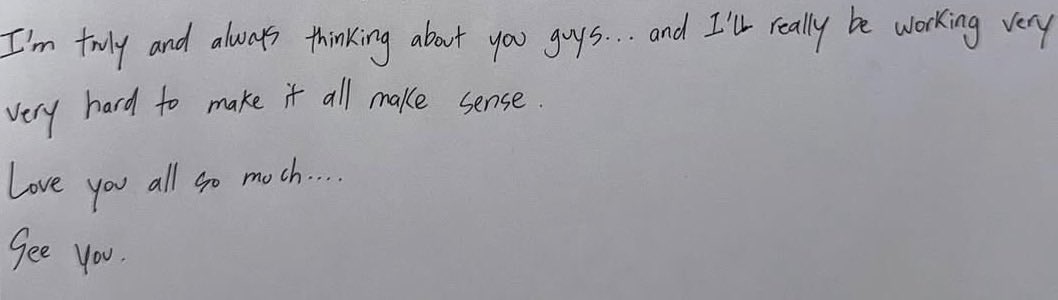 I'm truly and always thinking about you guys... and I'll really be working very
very hard to make it all make sense.
Love you all so much....
See you.